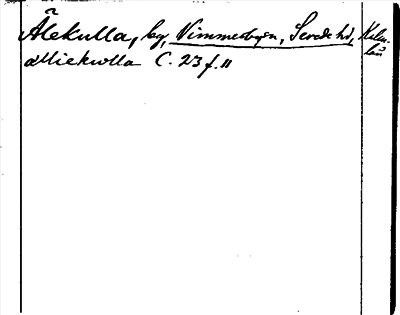 Ålekulla, by, Vimmerbyen, Sevede hd, Kalm.
län
aMiekulla C. 23 f. 11